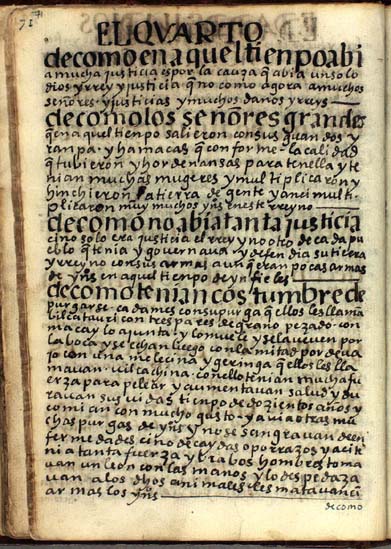 71
EL QVARTO
de como en aquel tienpo abi
a mucha justicia es por la cauza q̃ abia un solo
dios y rrey y justicia q̃ no como agora a muchos
señores y justicias y muchos daños y rrẏs
de como los señores grandes
q̃ en aquel tienpo salieron con sus quandos y
ranpa y hamacas que conforme la calidad
q̃ tubieron y hordenansas para tenella y te
nian muchas mugeres y multiplicaron y
hincieron la tierra de gente y anci mult
plicaron muy muchos yn̄s en este rreyno
de como no abia tanta justicia
cino solo era justicia el rrey no otro de cada pu
eblo q̃ tenia y governava y defendia su tierra
y rreyno con sus armas aunq̃ eran pocas armas
de yn̄s en aquel tienpo de ynfieles
de como tenian costumbre de
purgarse cada mes con su purga q̃ ellos les llama
bilcatauri con tres pares de grano pezado con
macay lo ajunta y lo mueve y se la veven por
la boca y se echan luego con la mitad por deva
jo con una melecina y geringa q̃ ellos les lla
mavan vilcachina con ello tenian mucha fu
erza para pelear y aumentavan salud y du
ravan sus vidas tienpo de dozientos años y
comian con mucho gusto y avia otras mu
chas purgas de yn̄s y no se sangravan de en
fermedades cino de caydas o porrazos y aci te
nia tanta fuerza y brabos honbres toma
van un leon con las manos y lo despedaza
van a los dhos animales les matavan ci
n armas los yn̄s
de como